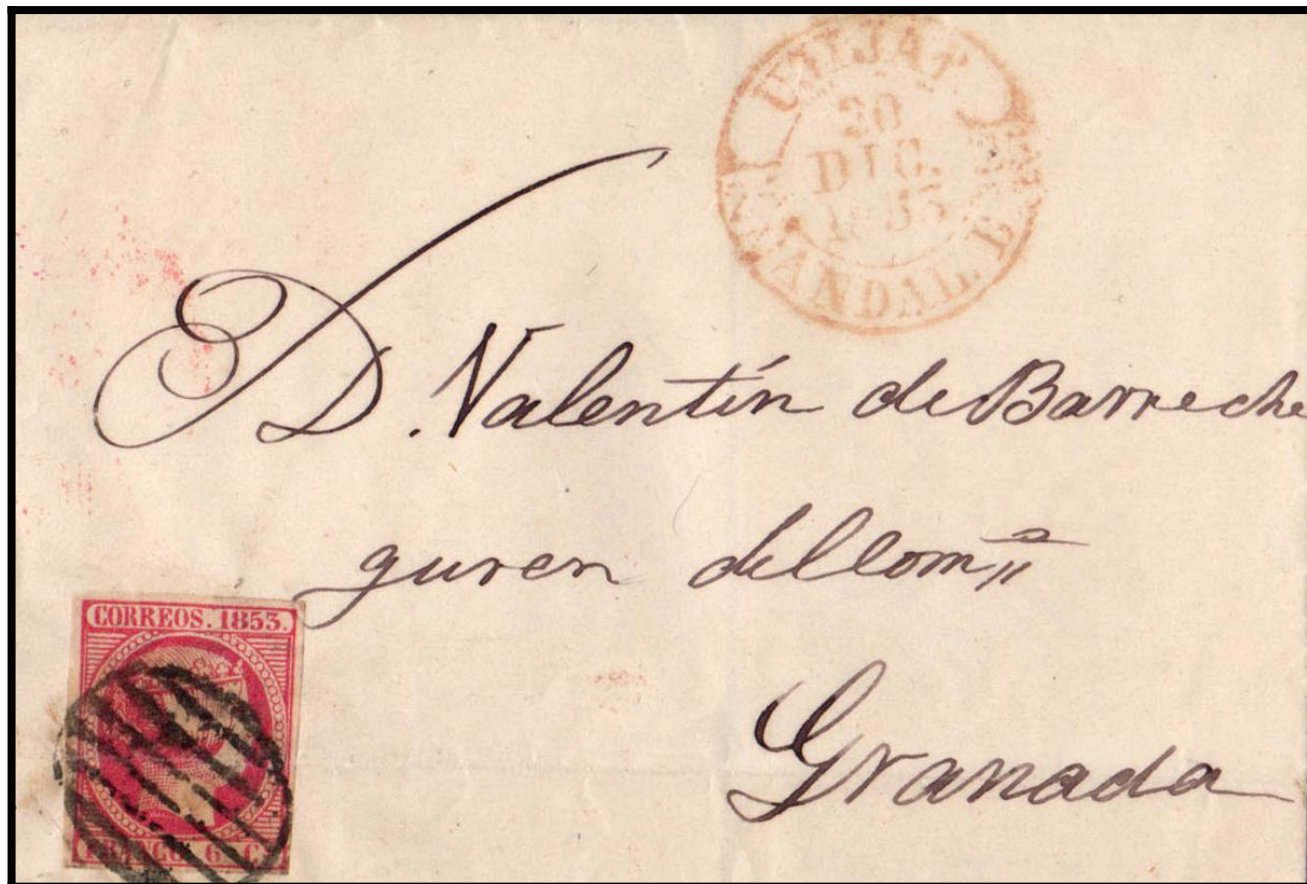 UGIJAR
20
DIC.
1853
ANDAL. E
D. Valentín de Barreche
guren del Com.º
Granada
CORREOS. 1853.
FRANCO 6 C.